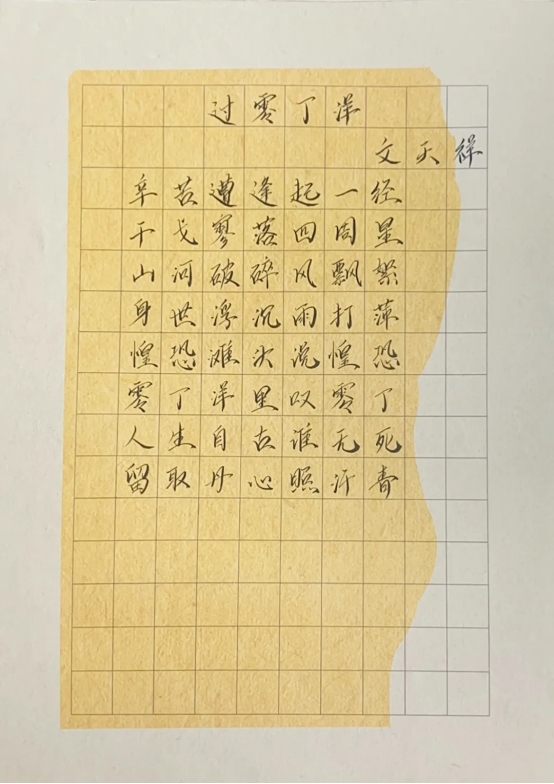 过零丁洋
文天祥
辛苦遭逢起一经
干戈寥落四周星
山河破碎风飘絮
身世浮沉雨打萍
惶恐滩头说惶恐
零丁洋里叹零丁
人生自古谁无死
留取丹心照汗青